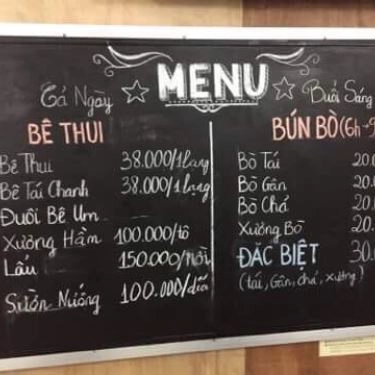 MENU
Cả Ngày
BÊ THUI
Bê Thui 38.000/1lạng
Bê Tái Chanh 38.000/1lạng
Đuôi Bê Um
Xương Hầm 100.000/tô
Lẩu 150.000/nồi
Sườn Nướng 100.000/dĩa
Buổi Sáng
BÚN BÒ (6h→9
Bò Tái 20.0
Bò Gân 20.
Bò Chả 20.
Xương Bò 20.
ĐẶC BIỆT 30.
(tái, Gân, chả, xương)